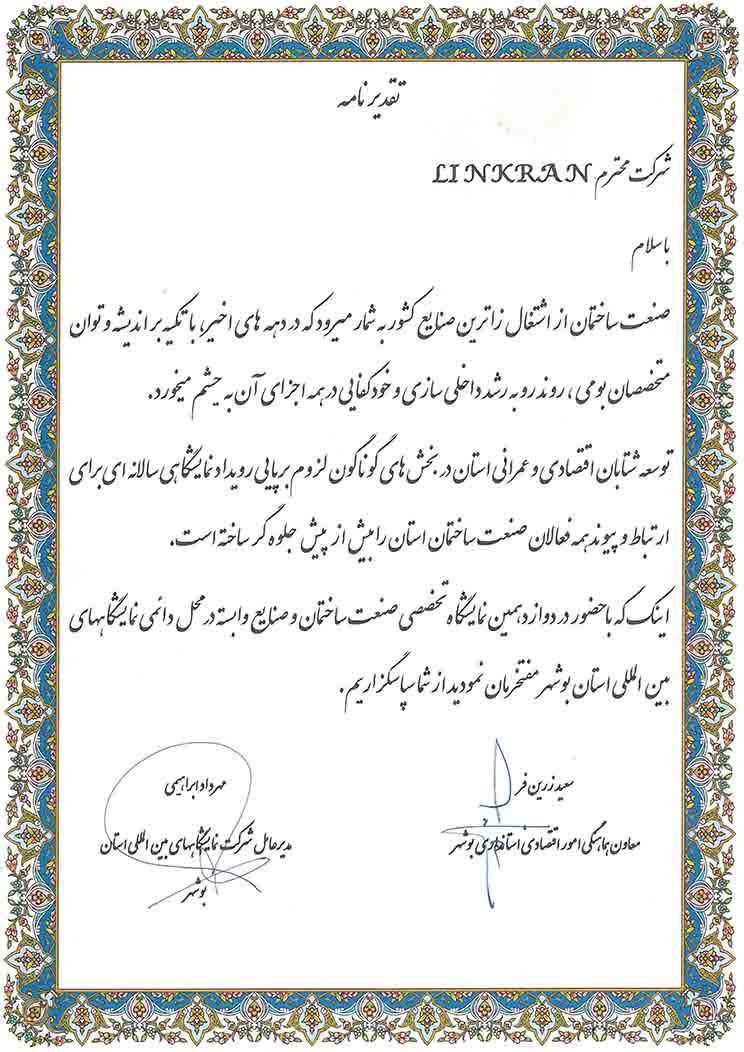 تقدیرنامه
شرکت محترم LINKRAN
با سلام
صنعت ساختمان از اشتغال زا ترین صنایع کشور به شمار میرود که در دهه های اخیر، با تکیه بر اندیشه و توان
متخصصان بومی، روند رو به رشد داخلی سازی و خودکفایی در همه اجزای آن به چشم میخورد.
توسعه شتابان اقتصادی و عمرانی استان در بخش های گوناگون لزوم برپایی رویداد نمایشگاهی سالانه ای برای
ارتباط و پیوند همه فعالان صنعت ساختمان استان را بیش از پیش جلوه گر ساخته است.
اینک که با حضور در دوازدهمین نمایشگاه تخصصی صنعت ساختمان و صنایع وابسته در محل دائمی نمایشگاههای
بین المللی استان بوشهر مفتخرمان نمودید از شما سپاسگزاریم.
سعید زرین فر
معاون هماهنگی امور اقتصادی استانداری بوشهر
مهرداد ابراهیمی
مدیرعامل شرکت نمایشگاههای بین المللی استان
بوشهر